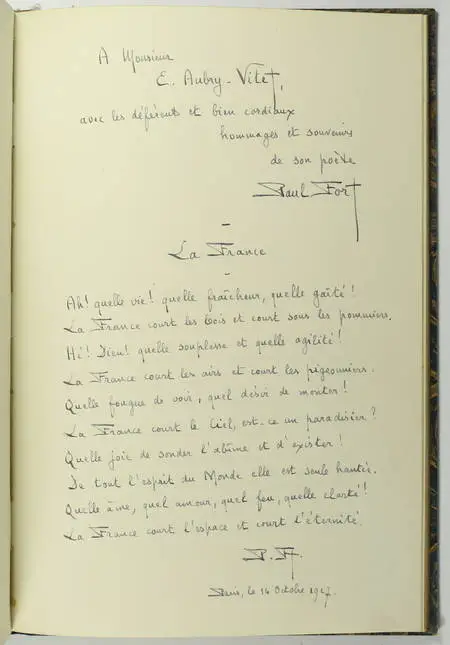 A Monsieur
E. Aubry-Vitet,
avec les déférents et bien cordiaux
hommages et souvenirs
de son poète
Paul Fort
La France
Ah! quelle vie! quelle fraîcheur, quelle gaîté!
La France court les bois et court sous les pommiers.
Hi! Dieu! quelle souplesse et quelle agilité!
La France court les airs et court les pigeonniers.
Quelle fougue de voir, quel désir de monter!
La France court le Ciel, est-ce un paradisier?
Quelle joie de sonder l'abîme et d'exister!
De tout l'esprit du Monde elle est seule hantée.
Quelle âme, quel amour, quel feu, quelle clarté!
La France court l'espace et court l'éternité.
P. F.
Paris, le 14 Octobre 1917.